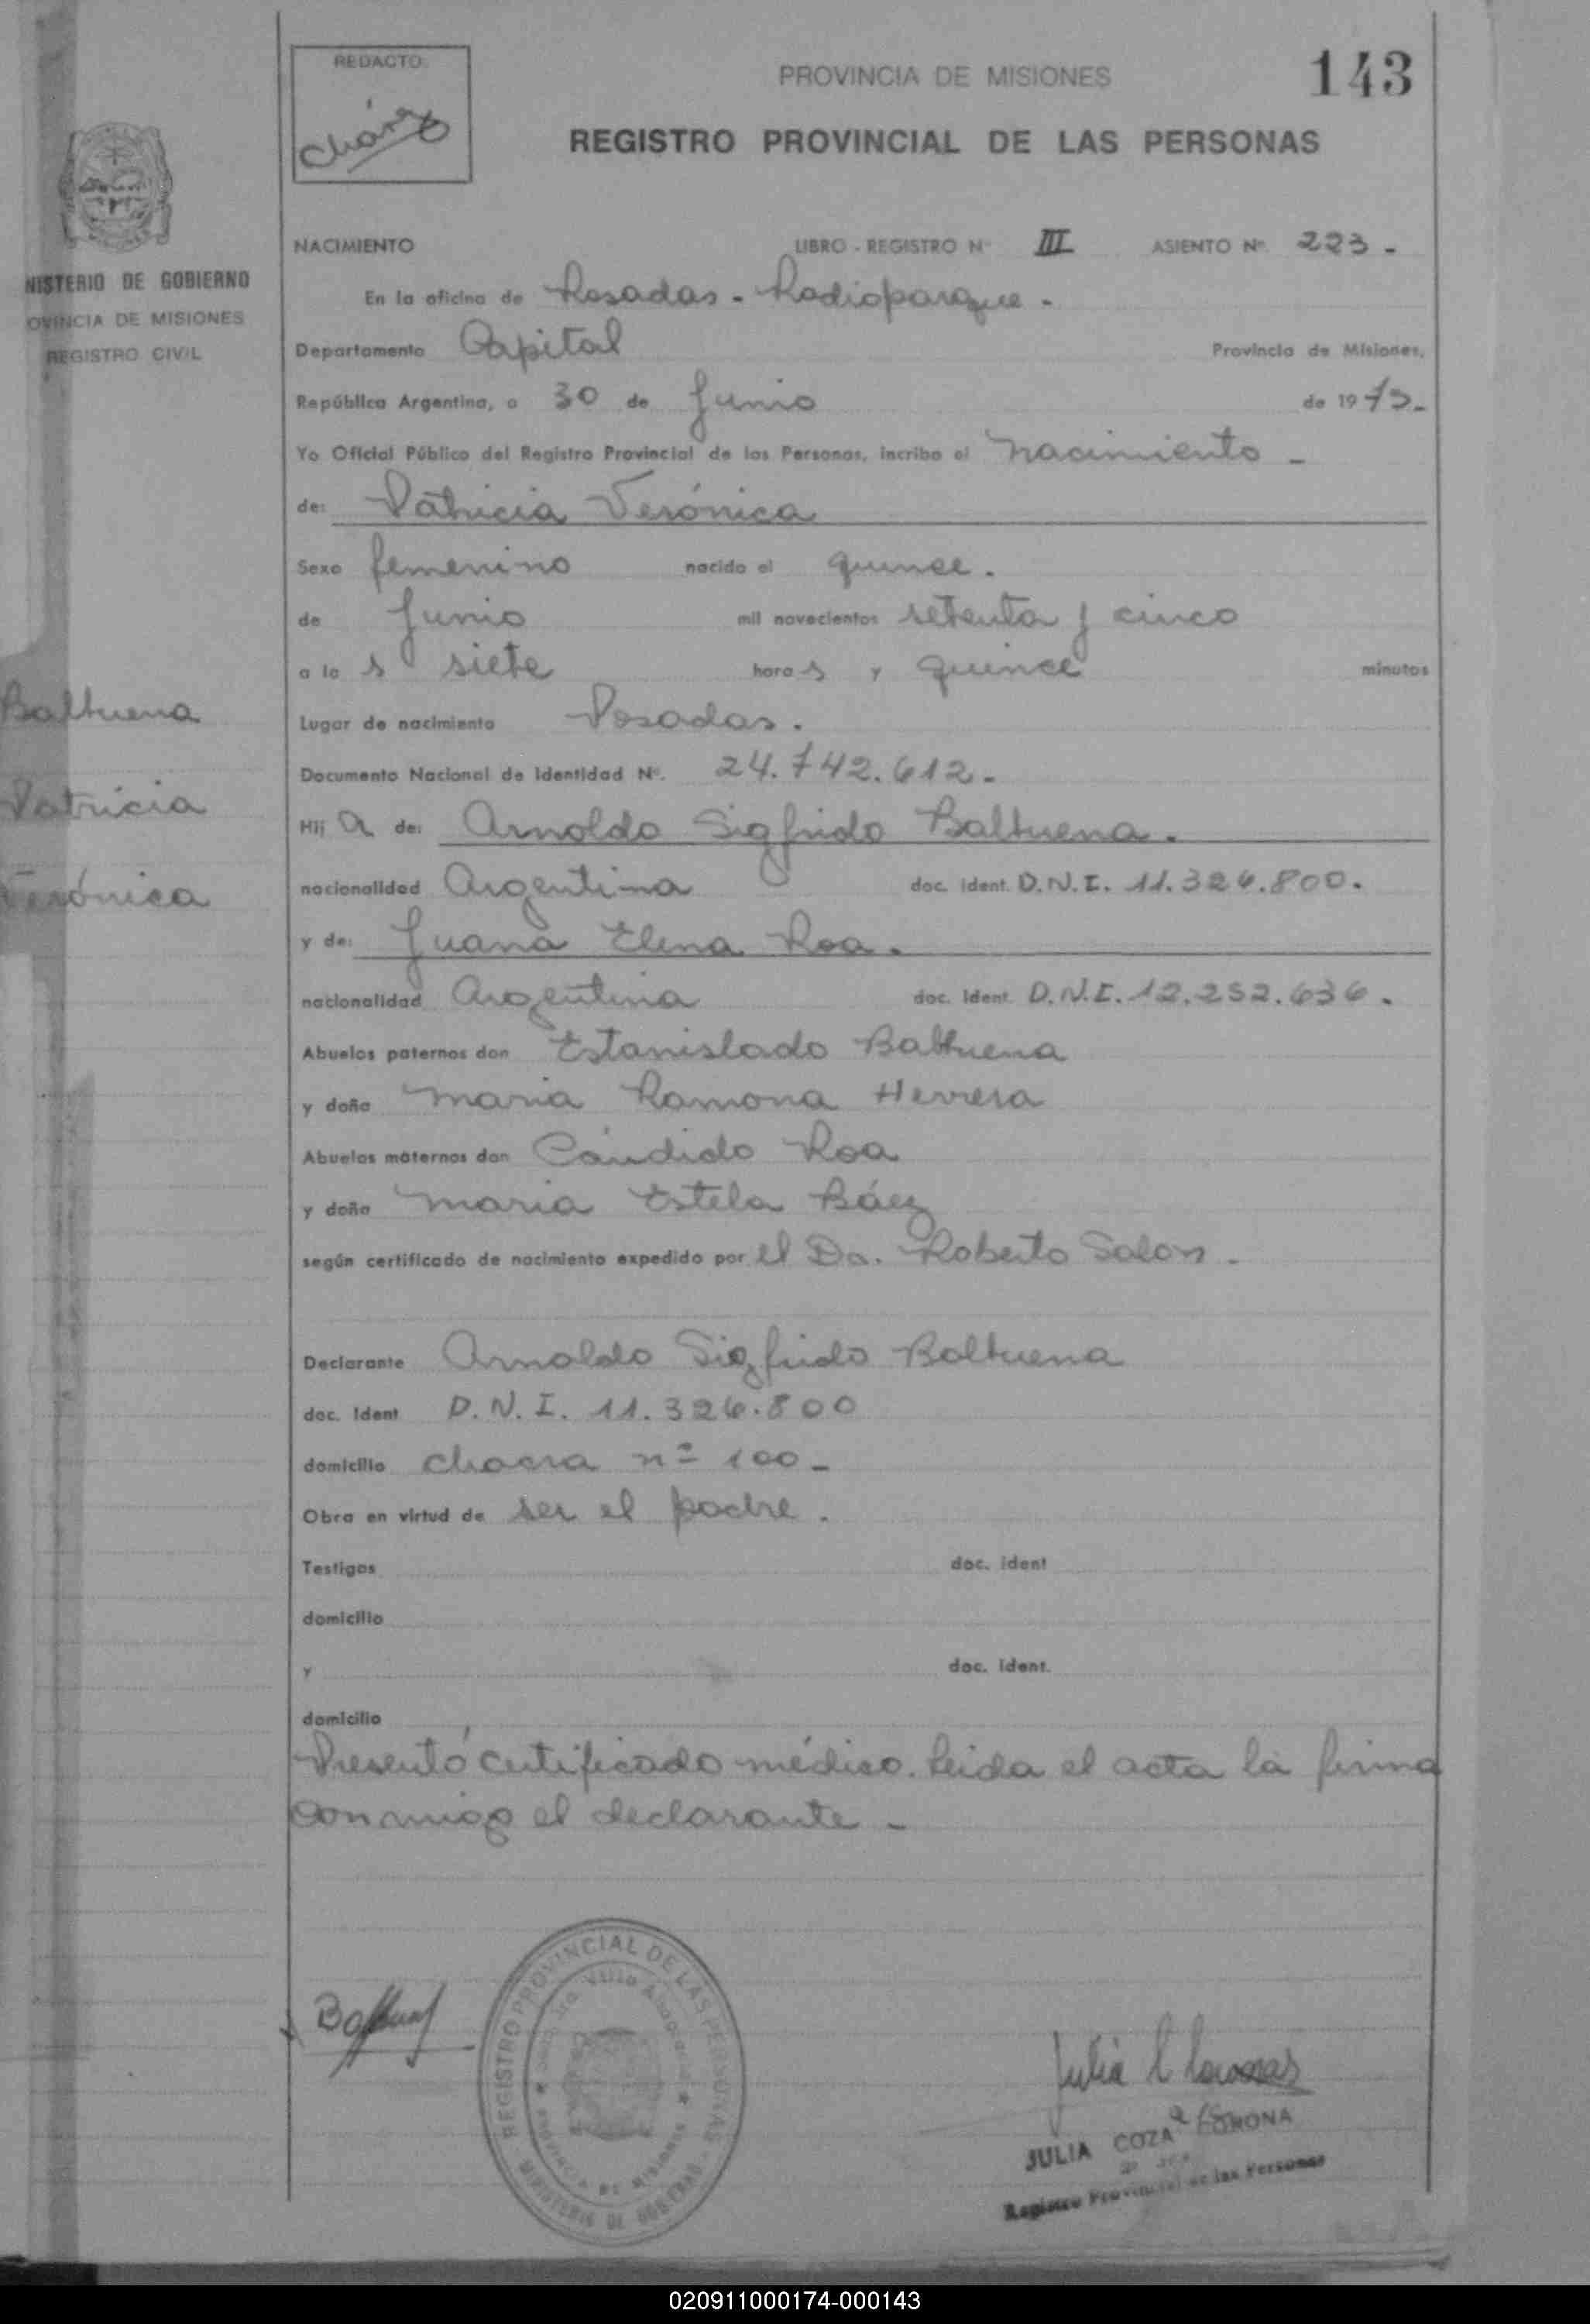 REDACTO
Cháves
PROVINCIA DE MISIONES
143
REGISTRO PROVINCIAL DE LAS PERSONAS
NISTERIO DE GOBIERNO
OVINCIA DE MISIONES
REGISTRO CIVIL
NACIMIENTO LIBRO - REGISTRO Nº III ASIENTO Nº 223 -
En la oficina de Posadas - Radioparque -
Departamento Capital Provincia de Misiones,
República Argentina, a 30 de Junio de 1975-
Yo Oficial Público del Registro Provincial de las Personas, incribo el nacimiento -
de: Patricia Verónica
Sexo femenino nacido el quince.
de Junio mil novecientos setenta y cinco
a la s siete hora s y quince minutos
Balbuena
Lugar de nacimiento Posadas.
Documento Nacional de Identidad Nº. 24.742.612-
Patricia
Hij a de: Arnoldo Sigfrido Balbuena.
nacionalidad Argentina doc. ident. D.N.I. 11.326.800.
Verónica
y de: Juana Elena Roa.
nacionalidad Argentina doc. ident. D.N.I. 12.252.636.
Abuelos paternos don Estanislado Balbuena
y doña Maria Ramona Herrera
Abuelos maternos don Cándido Roa
y doña Maria Estela Báez
según certificado de nacimiento expedido por el Dr. Roberto Salon -
Declarante Arnoldo Sigfrido Balbuena
doc. ident D.N.I. 11.326.800
domicilio chacra nº 100-
Obra en virtud de ser el padre.
Testigos doc. ident
domicilio
y doc. ident.
domicilio
Presentó certificado médico. Leida el acta la firma
conmigo el declarante -
REGISTRO PROVINCIAL DE LAS PERSONAS
MINISTERIO DE GOBIERNO
PROVINCIA DE MISIONES
JULIA COZA CORONA
Registro Provincial de las Personas
020911000174-000143